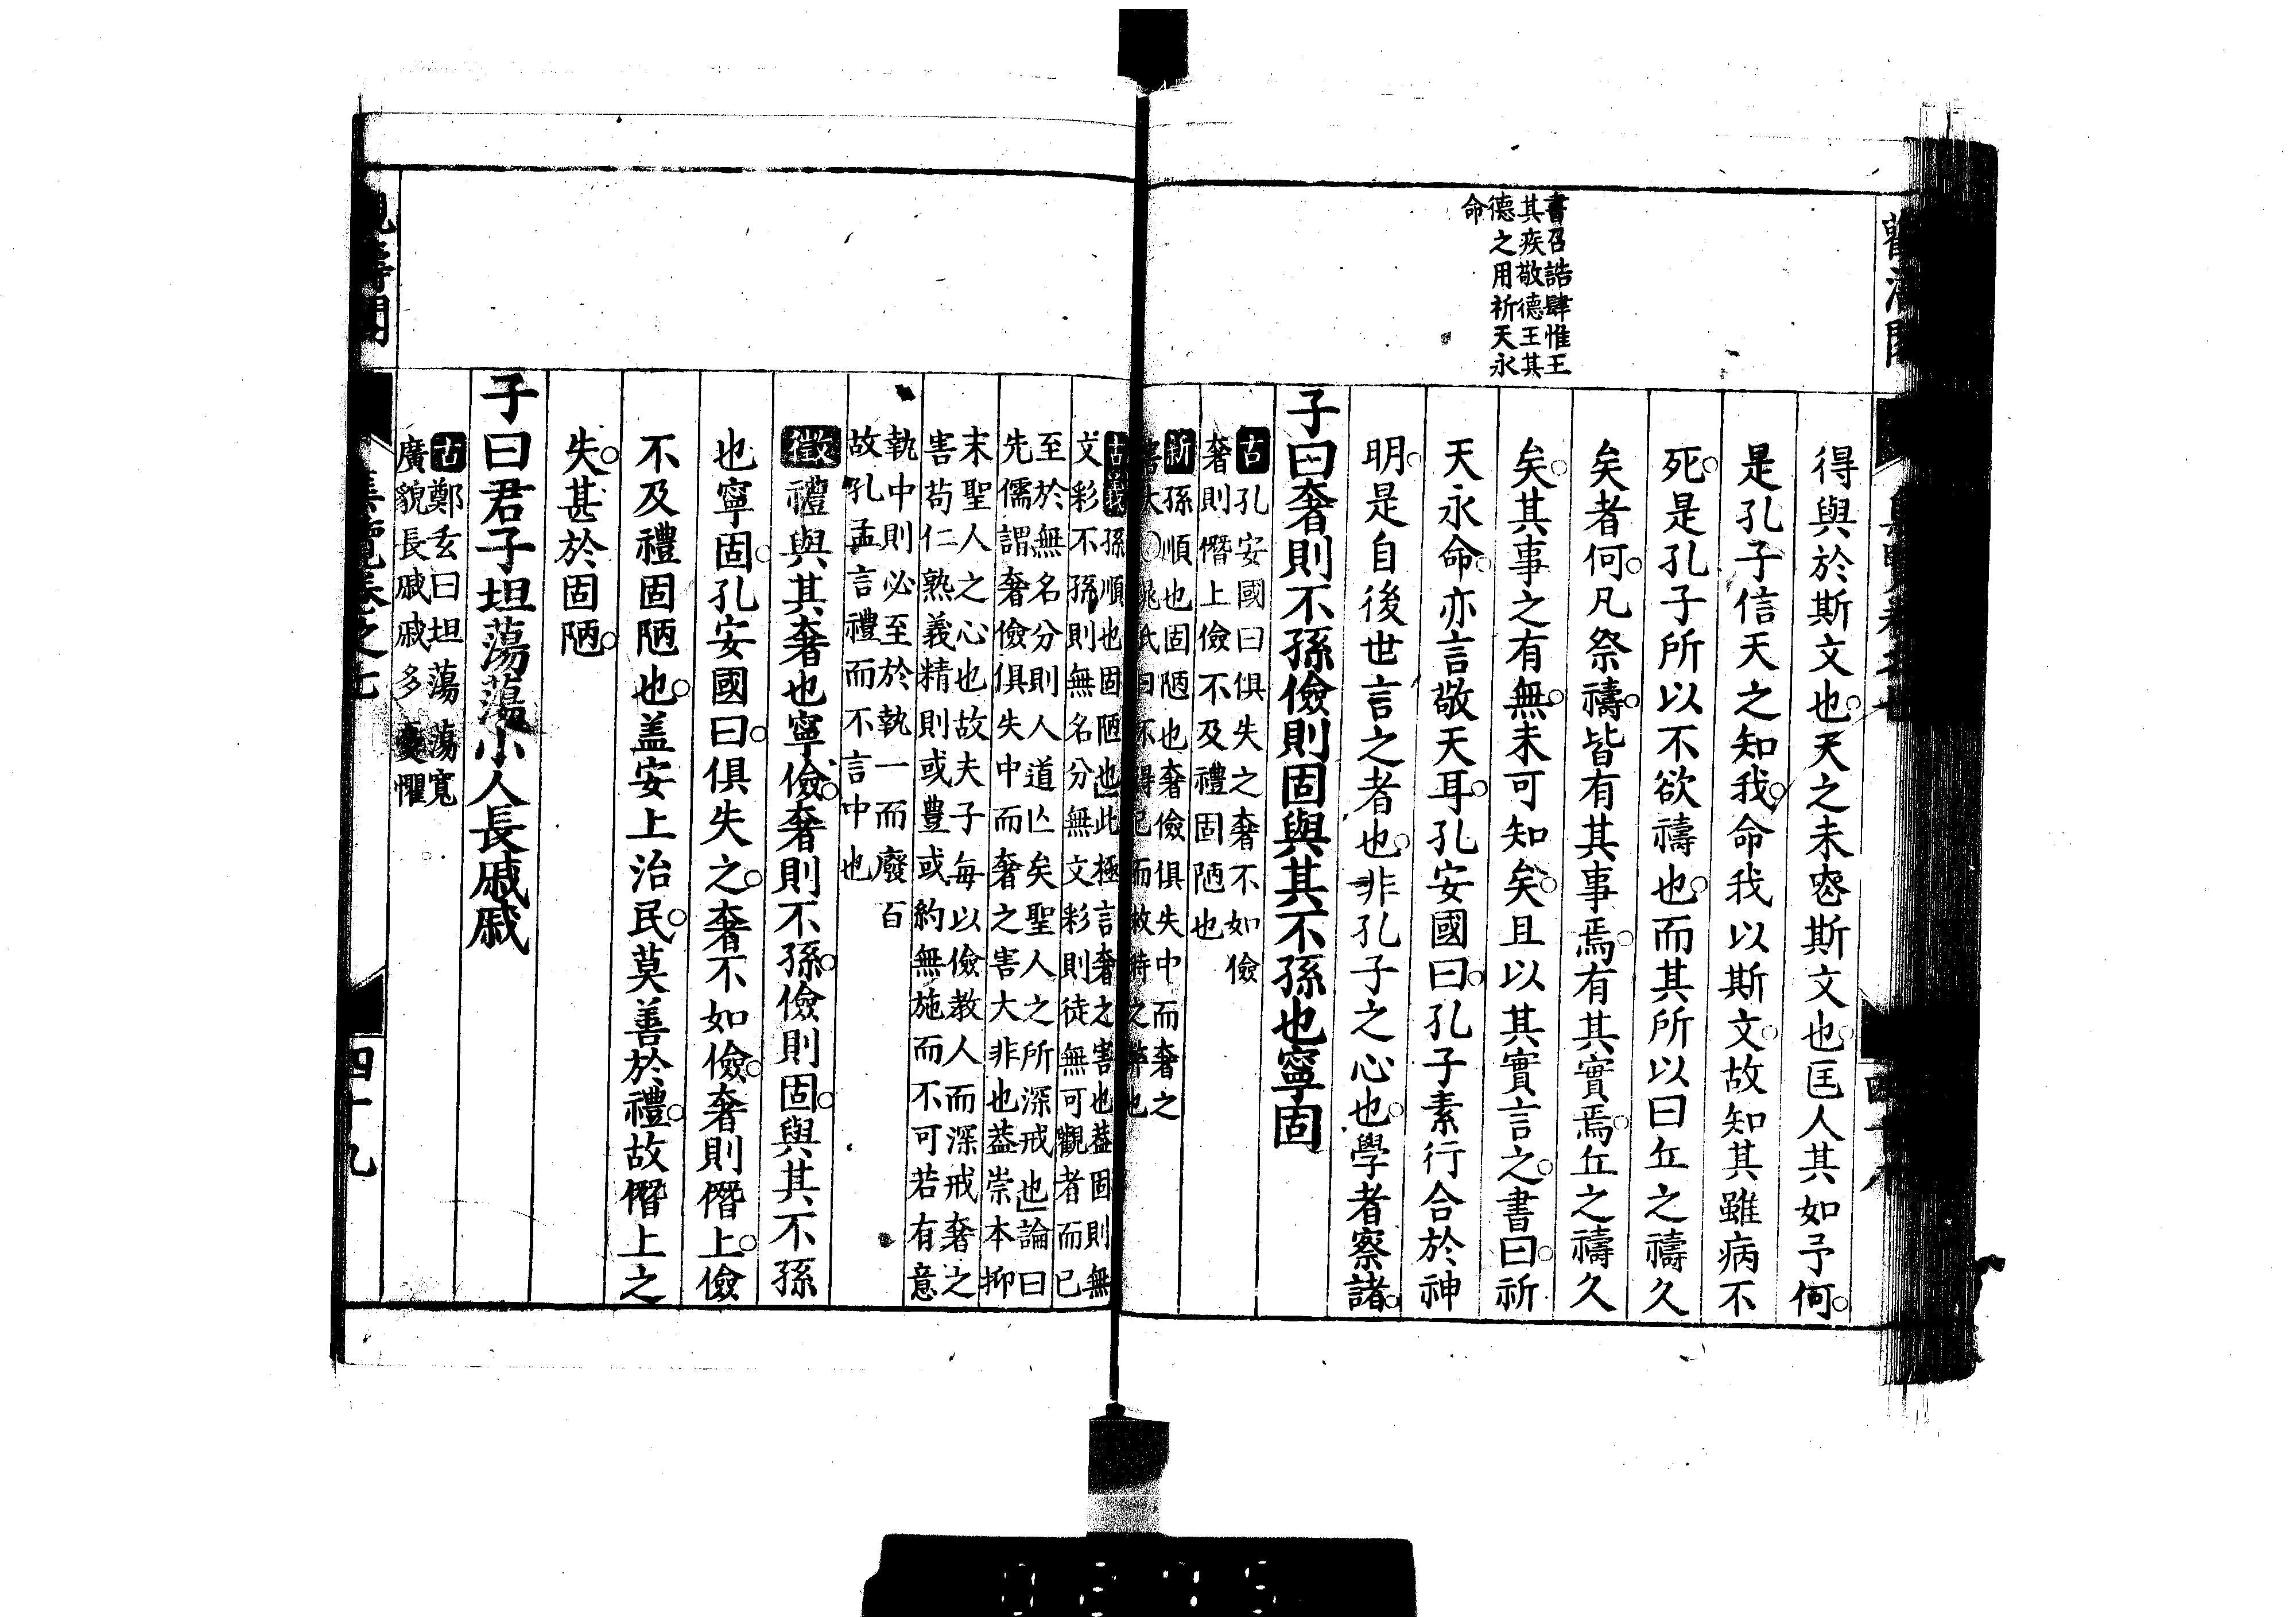 書召誥肆惟王
其疾敬德王其
德之用祈天永
命
得與於斯文也天之未喪斯文也匡人其如予何
是孔子信天之知我命我以斯文故知其雖病不
死是孔子所以不欲禱也而其所以曰丘之禱久
矣者何凡祭禱皆有其事焉有其實焉丘之禱久
矣其事之有無未可知矣且以其實言之書曰祈
天永命亦言敬天耳孔安國曰孔子素行合於神
明是自後世言之者也非孔子之心也學者察諸
子曰奢則不孫儉則固與其不孫也寧固
古孔安國曰俱失之奢不如儉
奢則僭上儉不及禮固陋也
新孫順也固陋也奢儉俱失中而奢之
害大
古義孫順也固陋也此極言奢之害也蓋固則無
文彩不孫則無名分無文彩則徒無可觀者而已
至於無名分則人道亡矣聖人之所深戒也論曰
先儒謂奢儉俱失中而奢之害大非也蓋崇本抑
末聖人之心也故夫子每以儉教人而深戒奢之
害苟仁熟義精則或豐或約無施而不可若有意
執中則必至於執一而廢百
故孔孟言禮而不言中也
徵禮與其奢也寧儉奢則不孫儉則固與其不孫
也寧固孔安國曰俱失之奢不如儉奢則僭上儉
不及禮固陋也盖安上治民莫善於禮故僭上之
失甚於固陋
子曰君子坦蕩蕩小人長戚戚
古鄭玄曰坦蕩蕩寬
廣貌長戚戚多憂懼
集覽卷之七
四十九